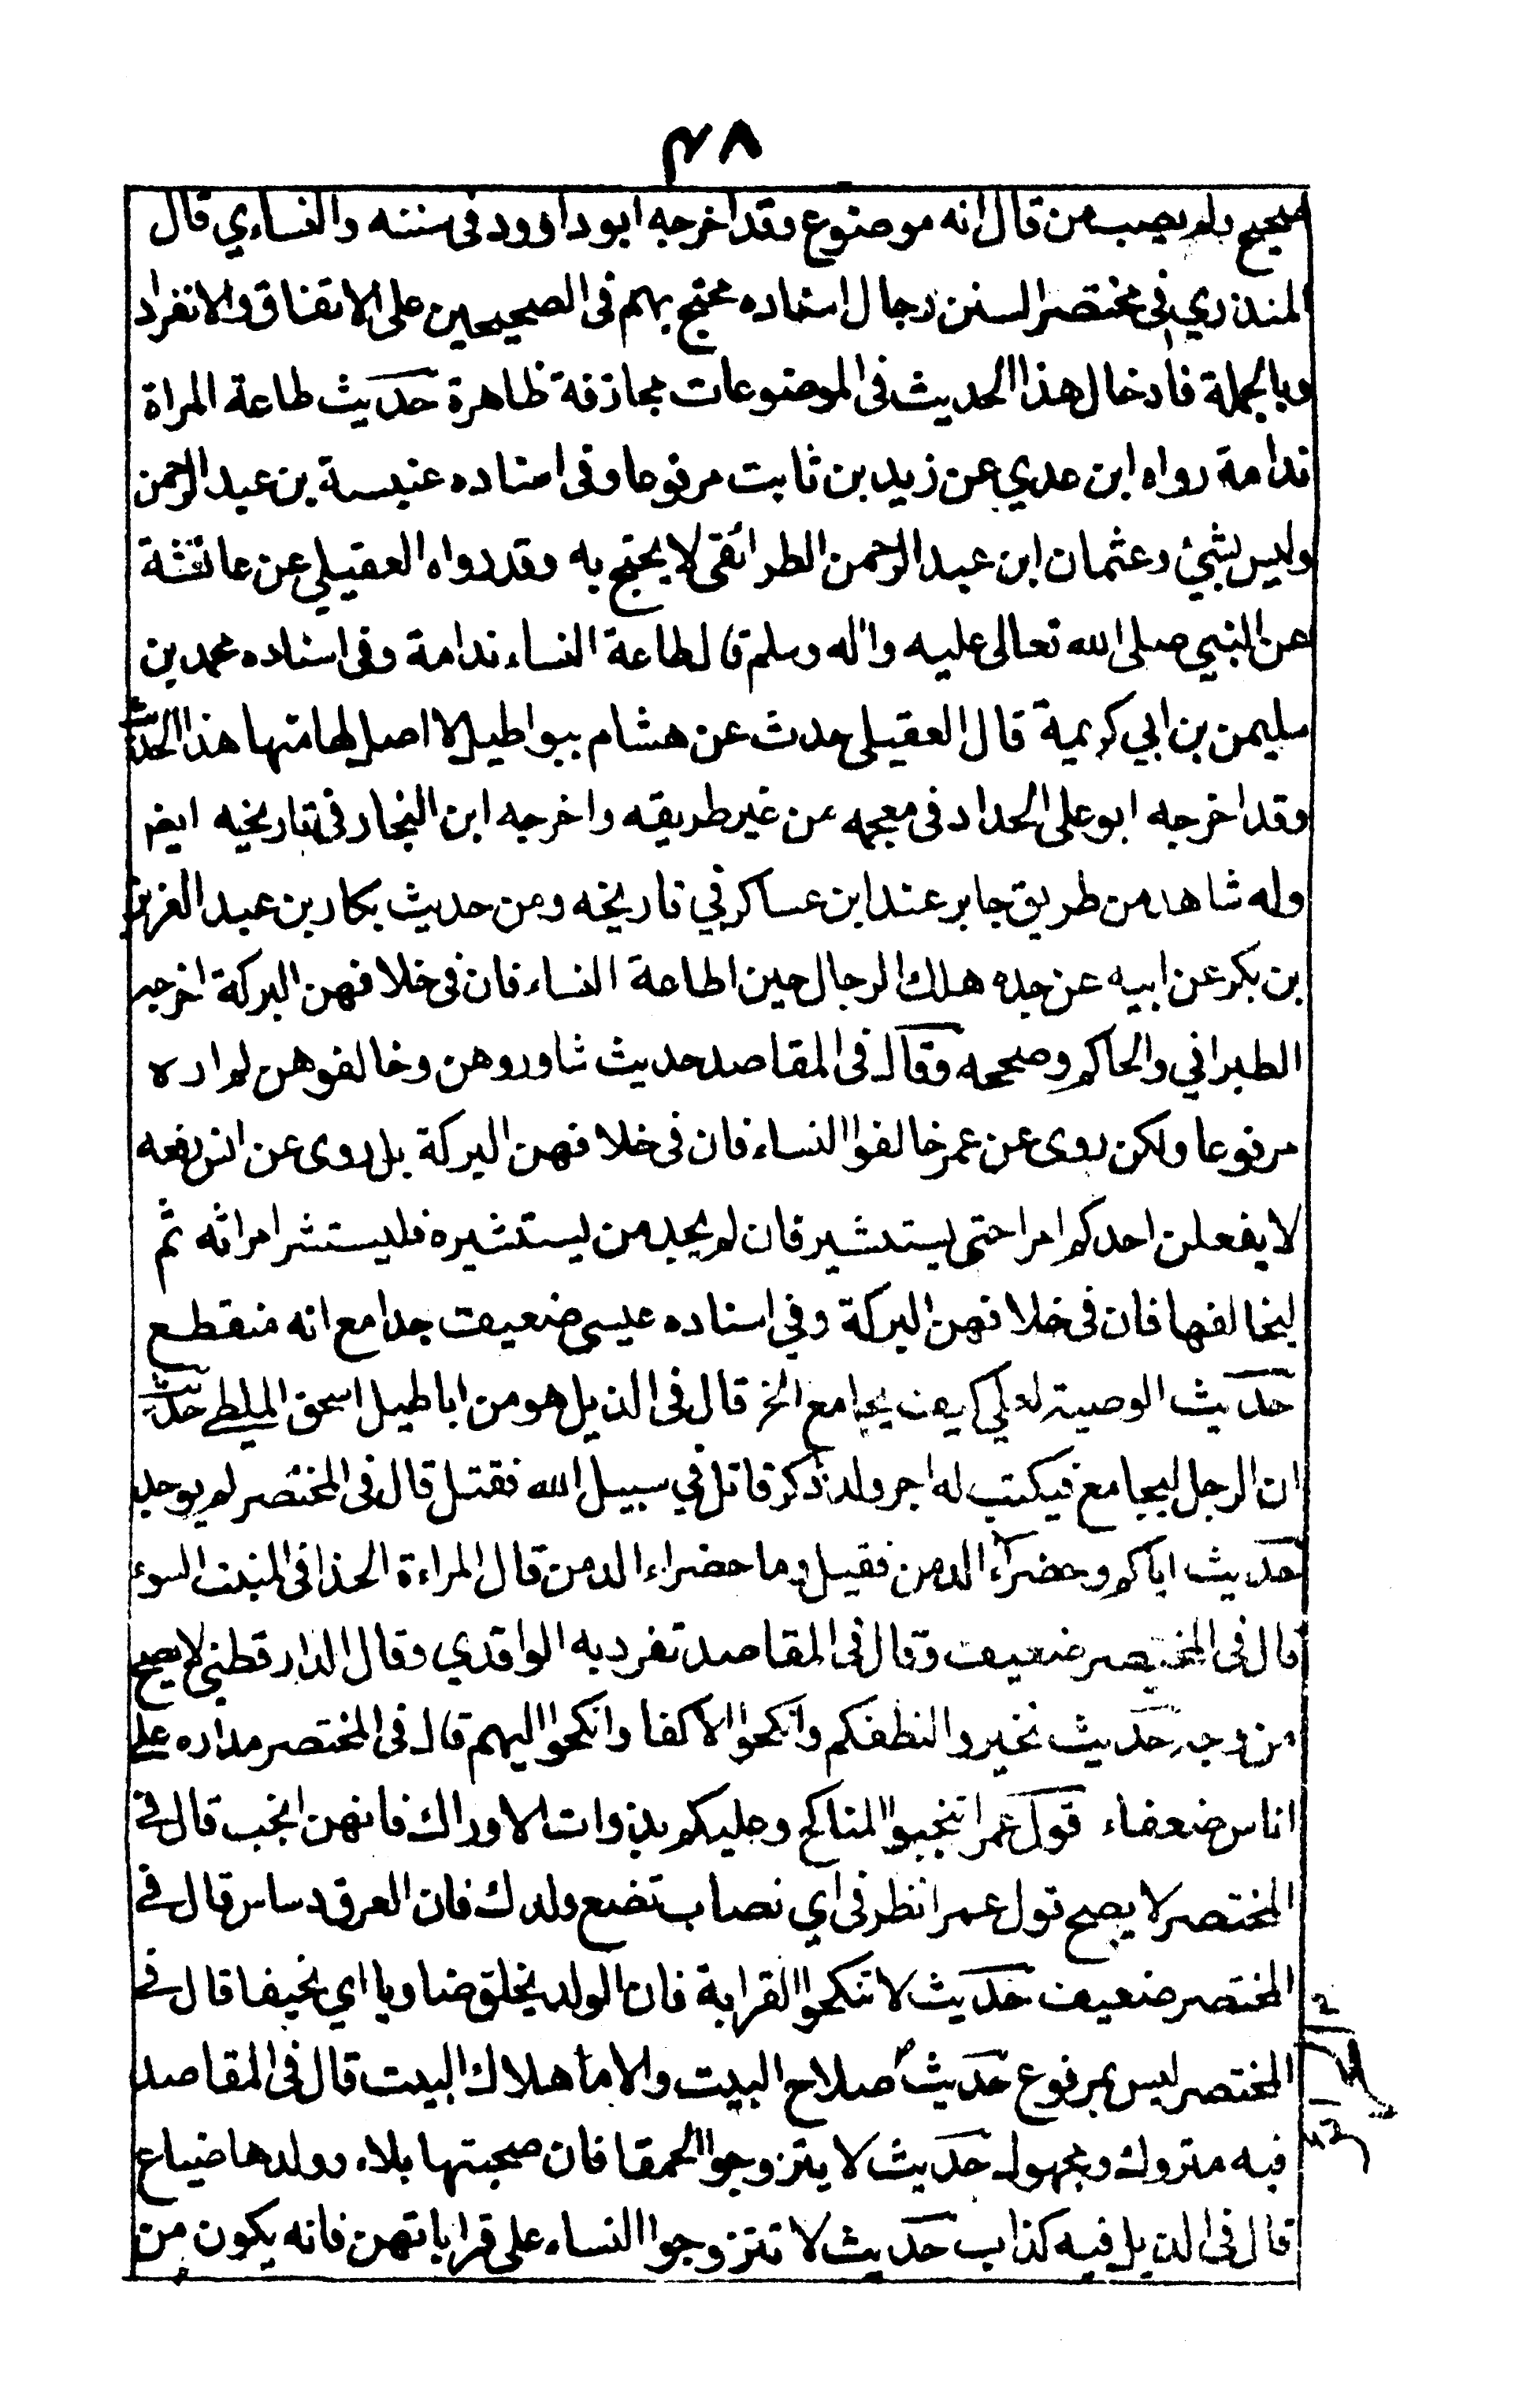 ٤٨
صحيح ولم يصب من قال انه موضوع وقد اخرجه ابو داوود فى سننه والنساءي قال
المنذري فى مختصر السنن رجال اسناده محتج بهم فى الصحيحين على الاتفاق والانفراد
وبالجملة فادخال هذا الحديث فى الموضوعات مجازفة ظاهرة حديث طاعة المراة
ندامة رواه ابن عدي عن زيد بن ثابت مرفوعا وفى اسناده عنبسة بن عبد الرحمن
وليس بشيئ وعثمان ابن عبد الرحمن الطرائقى لا يحتج به وقد رواه العقيلي عن عائشة
عن النبي صلى الله تعالى عليه واله وسلم قال طاعة النساء ندامة وفى اسناده محمد بن
سليمن بن ابي كريمة قال العقيلى حدث عن هشام ببواطيل لا اصل لها منها هذا الحديث
وقد اخرجه ابو على الحداد فى معجمه من غير طريقه واخرجه ابن النجار فى تاريخه ايضا
وله شاهد من طريق جابر عند ابن عساكر في تاريخه ومن حديث بكار بن عبد العزيز
بن بكر عن ابيه عن جده هلك الرجال حين اطاعة النساء فان فى خلافهن البركة اخرجه
الطبراني والحاكم وصححه وقال فى المقاصد حديث شاوروهن وخالفوهن لم اره
مرفوعا ولكن روى عن عمر خالفوا النساء فان فى خلافهن البركة بل روى عن انس رفعه
لا يفعلن احدكم امرا حتى يستشير فان لم يجد من يستشيره فليستشر امراته ثم
ليخالفها فان فى خلافهن البركة وفي اسناده عيسى ضعيف جدا مع انه منقطع
حديث الوصية لعلي كيف يجامع الخ قال فى الذيل هو من اباطيل اسحق الملطي حديث
ان الرجل ليجامع فيكتب له اجر ولد ذكر قاتل في سبيل الله فقتل قال فى المختصر لم يوجد
حديث اياكم وخضراء الدمن فقيل وما خضراء الدمن قال المراءة الحذا فى المنبت السوء
قال فى المختصر ضعيف وقال فى المقاصد تفرد به الواقدي وقال الدارقطني لا يصح
من وجه حديث تخيروا لنطفكم وانكحوا الاكفا وانكحوا اليهم قال فى المختصر مداره على
اناس ضعفاء قول عمر انتجبوا المناكح وعليكم بذوات الاوراك فانهن انجب قال فى
المختصر لا يصح قول عمر انظر فى اي نصاب تضع ولدك فان العرق دساس قال فى
المختصر ضعيف حديث لا تنكحوا القرابة فان الولد يخلق ضاويا اي نحيفا قال فى
المختصر ليس بمرفوع حديث صلاح البيت والاما هلاك البيت قال فى المقاصد
فيه متروك ومجهول حديث لا يتزوجوا الحمقا فان صحبتها بلاء وولدها ضياع
قال فى الذيل فيه كذاب حديث لا تتزوجوا النساء على قراباتهن فانه يكون من